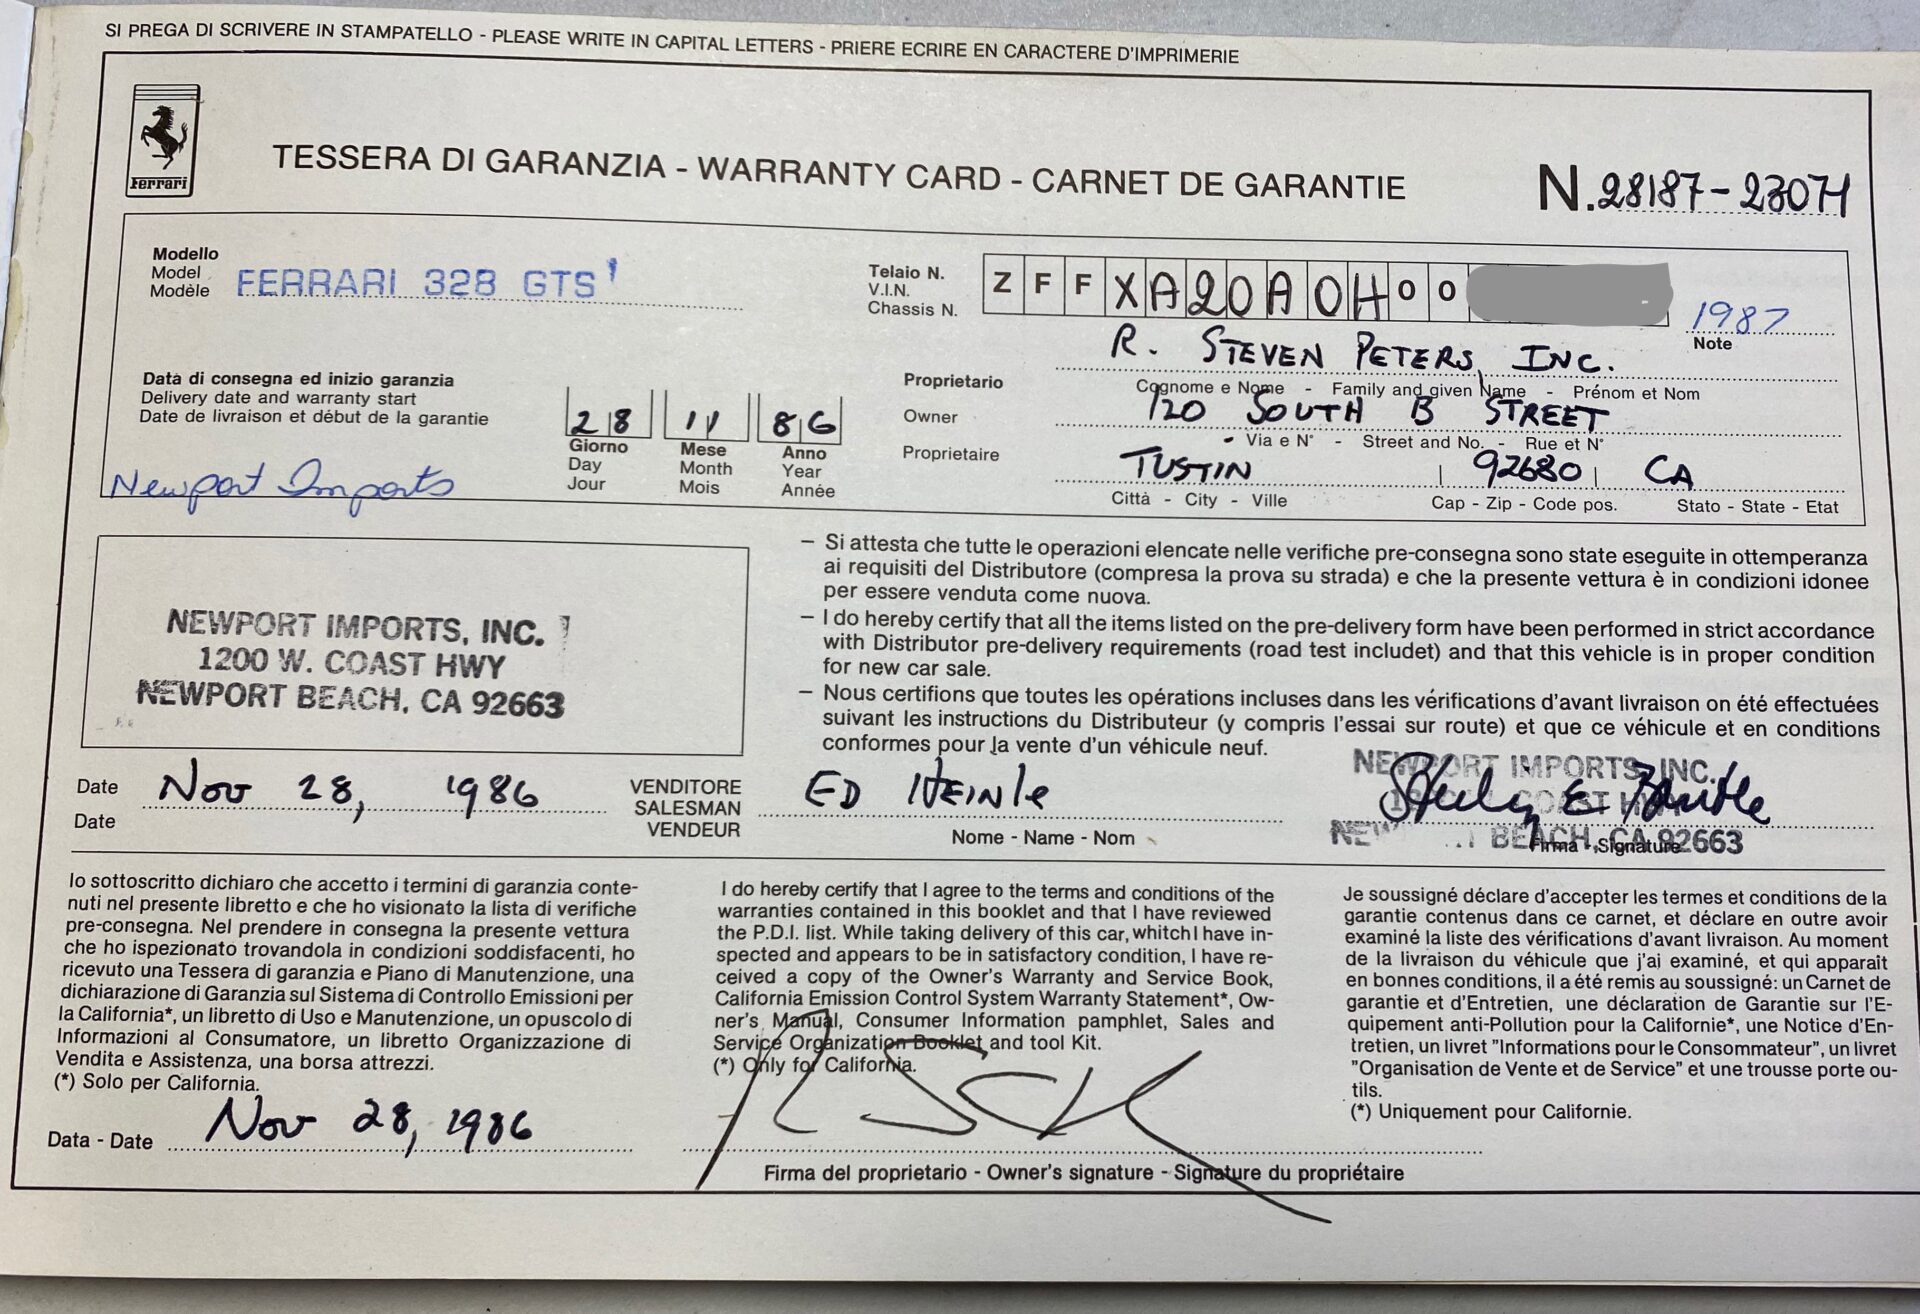 SI PREGA DI SCRIVERE IN STAMPATELLO - PLEASE WRITE IN CAPITAL LETTERS - PRIERE ECRIRE EN CARACTERE D'IMPRIMERIE
Ferrari
TESSERA DI GARANZIA - WARRANTY CARD - CARNET DE GARANTIE
N. 28187-23071
Modello
Model
Modèle
FERRARI 328 GTS
Telaio N.
V.I.N.
Chassis N.
ZFFXA20A0H00
1987
Note
Data di consegna ed inizio garanzia
Delivery date and warranty start
Date de livraison et début de la garantie
28 11 86
Giorno Mese Anno
Day Month Year
Jour Mois Année
Newport Imports
Proprietario
Owner
Proprietaire
R. STEVEN PETERS, INC.
Cognome e Nome - Family and given Name - Prénom et Nom
120 SOUTH B STREET
Via e N° - Street and No. - Rue et N°
TUSTIN 92680 CA
Città - City - Ville Cap - Zip - Code pos. Stato - State - Etat
NEWPORT IMPORTS, INC.
1200 W. COAST HWY
NEWPORT BEACH, CA 92663
– Si attesta che tutte le operazioni elencate nelle verifiche pre-consegna sono state eseguite in ottemperanza
ai requisiti del Distributore (compresa la prova su strada) e che la presente vettura è in condizioni idonee
per essere venduta come nuova.
– I do hereby certify that all the items listed on the pre-delivery form have been performed in strict accordance
with Distributor pre-delivery requirements (road test includet) and that this vehicle is in proper condition
for new car sale.
– Nous certifions que toutes les opérations incluses dans les vérifications d'avant livraison on été effectuées
suivant les instructions du Distributeur (y compris l'essai sur route) et que ce véhicule et en conditions
conformes pour la vente d'un véhicule neuf.
Date
Date
Nov 28, 1986
VENDITORE
SALESMAN
VENDEUR
ED HEINLE
Nome - Name - Nom
NEWPORT IMPORTS, INC.
COAST HWY
NEWPORT BEACH, CA 92663
Firma - Signature
Io sottoscritto dichiaro che accetto i termini di garanzia conte-
nuti nel presente libretto e che ho visionato la lista di verifiche
pre-consegna. Nel prendere in consegna la presente vettura
che ho ispezionato trovandola in condizioni soddisfacenti, ho
ricevuto una Tessera di garanzia e Piano di Manutenzione, una
dichiarazione di Garanzia sul Sistema di Controllo Emissioni per
la California*, un libretto di Uso e Manutenzione, un opuscolo di
Informazioni al Consumatore, un libretto Organizzazione di
Vendita e Assistenza, una borsa attrezzi.
(*) Solo per California.
I do hereby certify that I agree to the terms and conditions of the
warranties contained in this booklet and that I have reviewed
the P.D.I. list. While taking delivery of this car, whitch I have in-
spected and appears to be in satisfactory condition, I have re-
ceived a copy of the Owner's Warranty and Service Book,
California Emission Control System Warranty Statement*, Ow-
ner's Manual, Consumer Information pamphlet, Sales and
Service Organization Booklet and tool Kit.
(*) Only for California.
Je soussigné déclare d'accepter les termes et conditions de la
garantie contenus dans ce carnet, et déclare en outre avoir
examiné la liste des vérifications d'avant livraison. Au moment
de la livraison du véhicule que j'ai examiné, et qui apparaît
en bonnes conditions, il a été remis au soussigné: un Carnet de
garantie et d'Entretien, une déclaration de Garantie sur l'E-
quipement anti-Pollution pour la Californie*, une Notice d'En-
tretien, un livret "Informations pour le Consommateur", un livret
"Organisation de Vente et de Service" et une trousse porte ou-
tils.
(*) Uniquement pour Californie.
Data - Date Nov 28, 1986
Firma del proprietario - Owner's signature - Signature du propriétaire